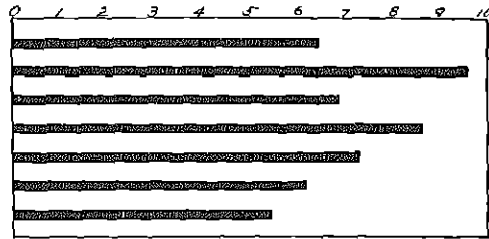 0 1 2 3 4 5 6 7 8 9 10